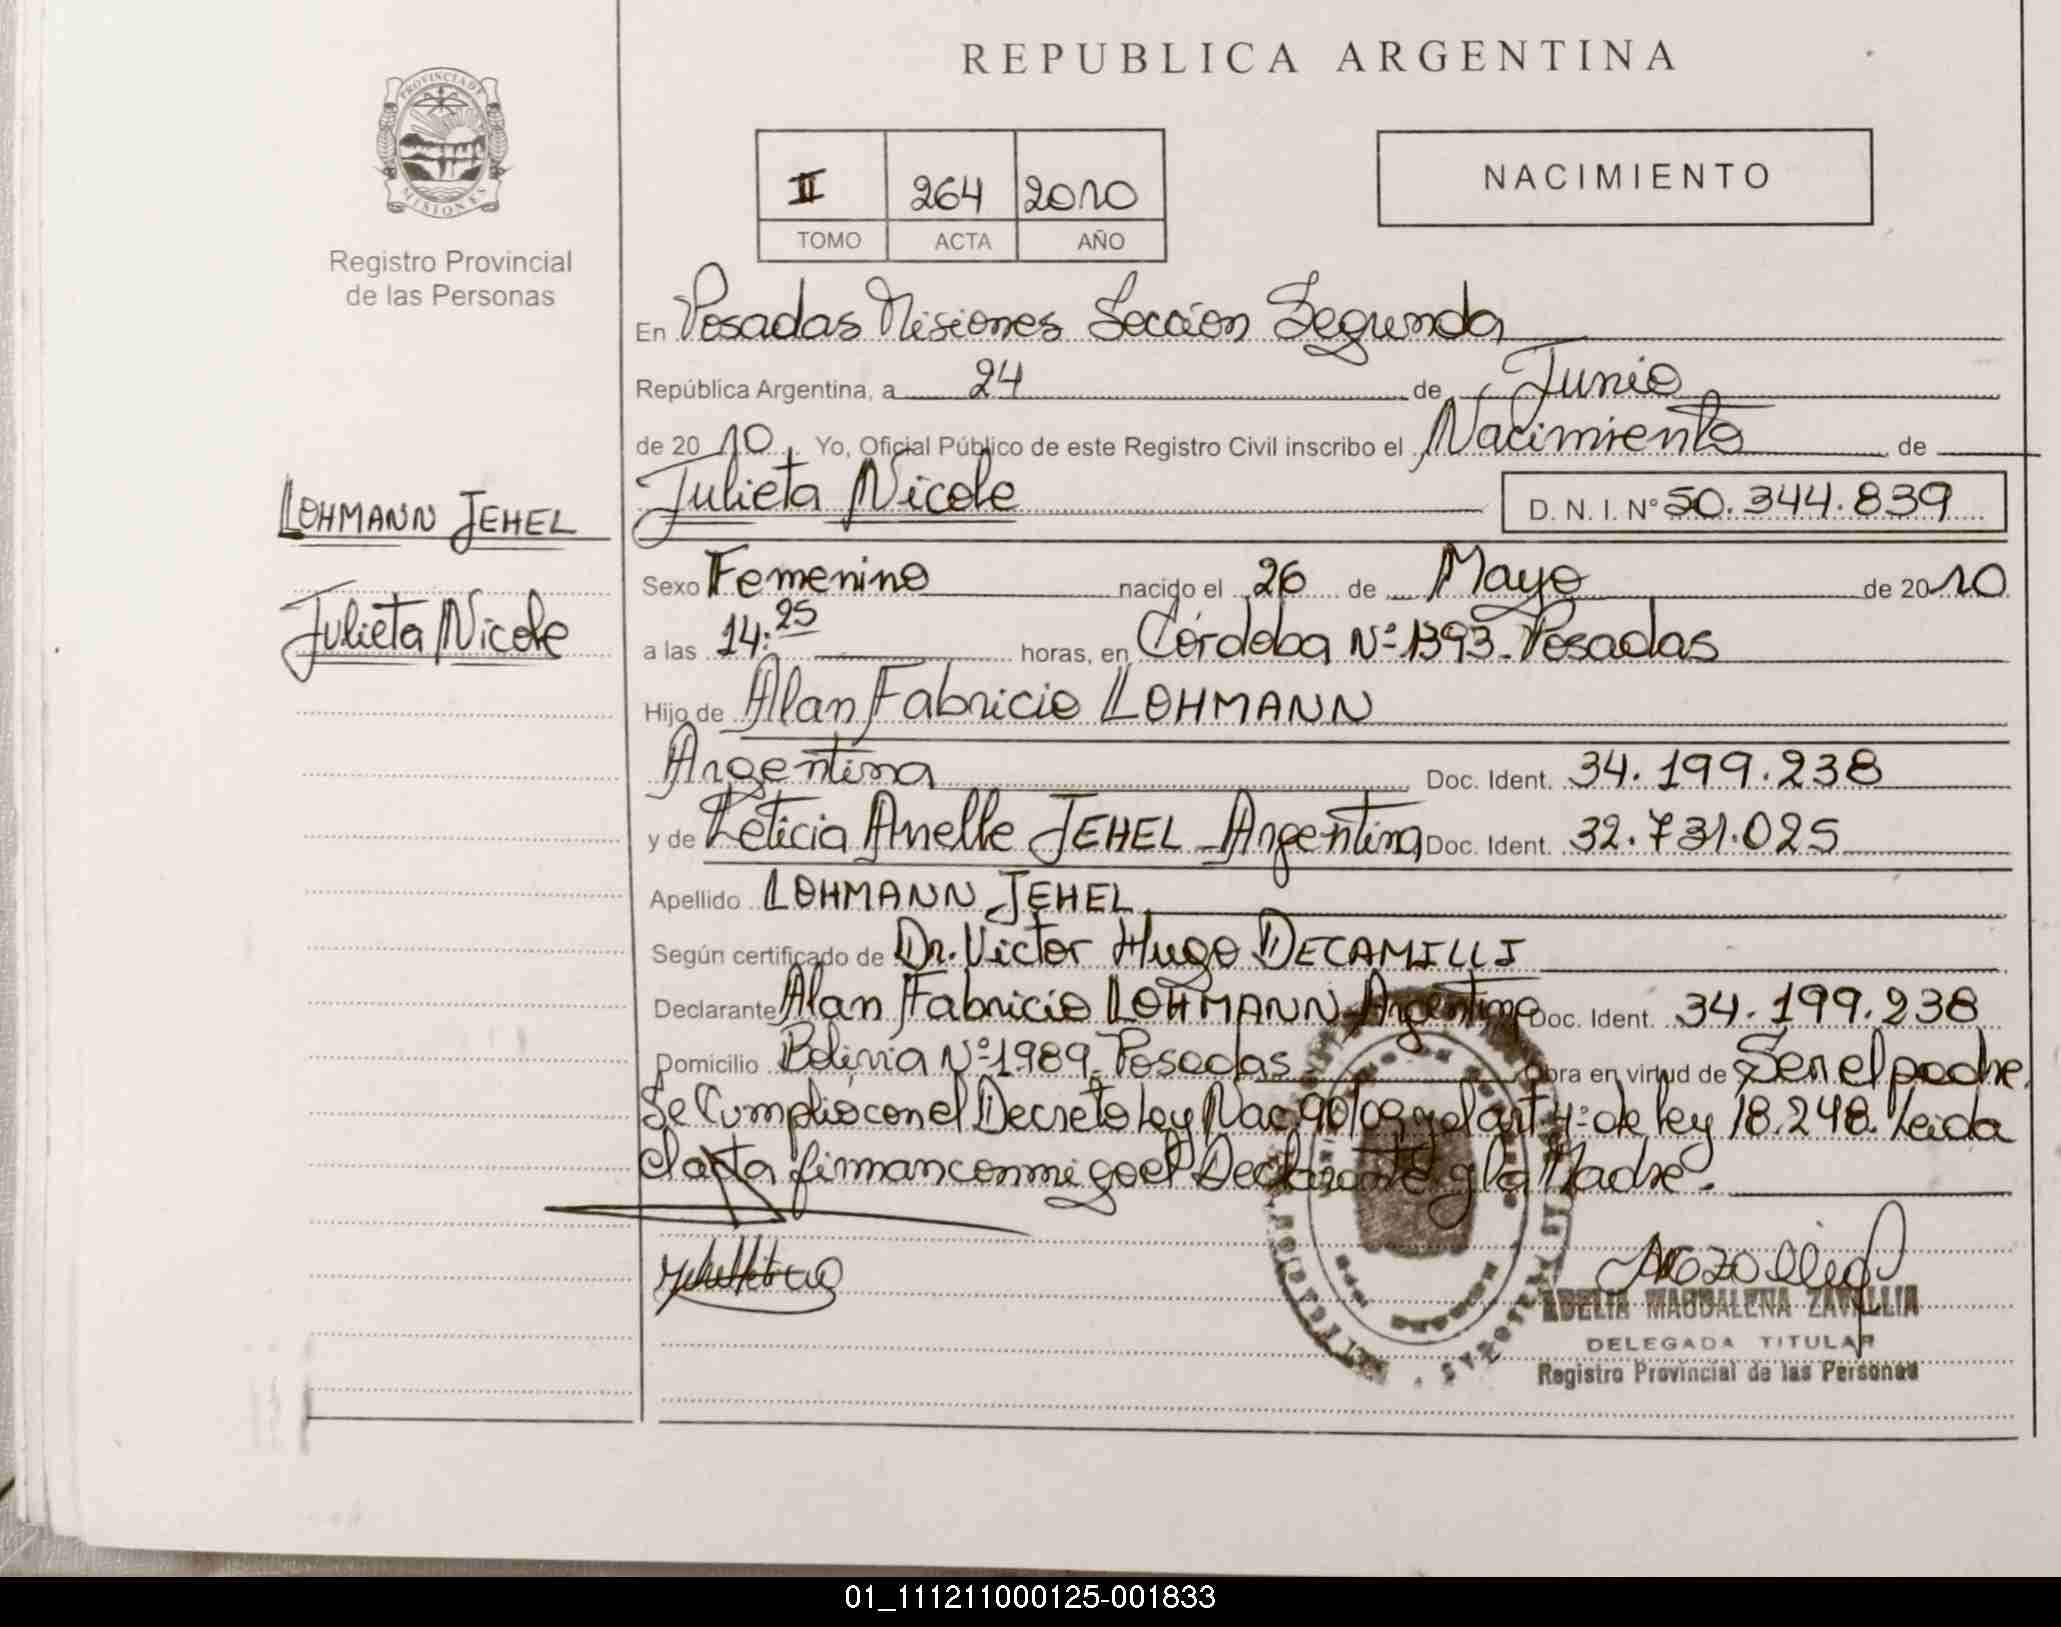 REPUBLICA ARGENTINA
PROVINCIA DE
MISIONES
Registro Provincial
de las Personas
II 264 2010
TOMO ACTA AÑO
NACIMIENTO
En Posadas Misiones Sección Segunda
República Argentina, a 24 de Junio
de 2010 Yo, Oficial Público de este Registro Civil inscribo el Nacimiento de
LOHMANN JEHEL
Julieta Nicole
Julieta Nicole D. N. I. N° 50.344.839
Sexo Femenino nacido el 26 de Mayo de 2010
a las 14:25 horas, en Córdoba Nº 1393. Posadas
Hijo de Alan Fabricio LOHMANN
Argentina Doc. Ident. 34.199.238
y de Leticia Anelle JEHEL Argentina Doc. Ident. 32.731.025
Apellido LOHMANN JEHEL
Según certificado de Dr. Victor Hugo DECAMILLI
Declarante Alan Fabricio LOHMANN Argentino Doc. Ident. 34.199.238
Domicilio Bolivia Nº 1989. Posadas Obra en virtud de Ser el padre.
Se Cumplio con el Decreto Ley Nac. 90/09 y el art 4º de ley 18.248. Leida
el acta firman conmigo el Declarante y la Madre.
ADELIA MAGDALENA ZAVALLIA
DELEGADA TITULAR
Registro Provincial de las Personas
01_111211000125-001833